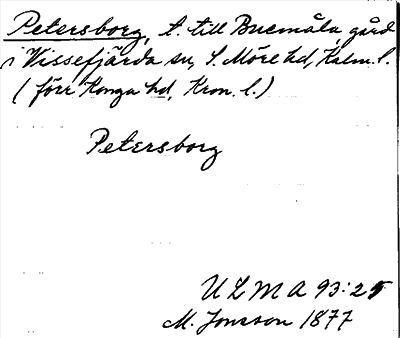 Petersborg, t. till Bucmåla, gård
i Vissefjärda sn, S. Möre hd, Kalm. l.
(förr Konga hd, Kron. l.)
Petersborg
ULMA 93:25
M. Jonsson 1877